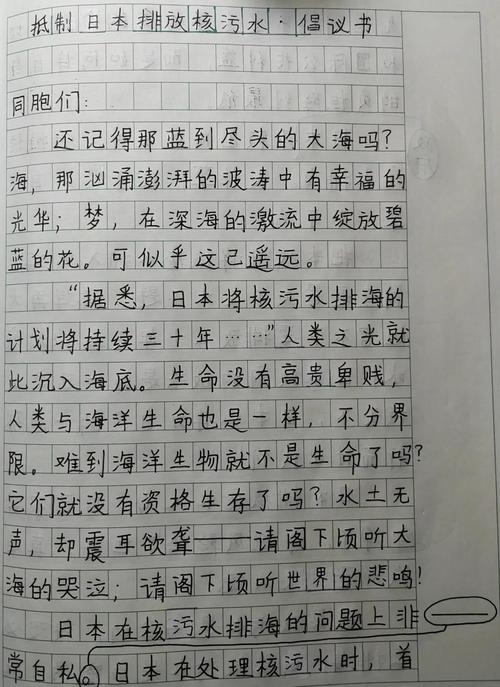 抵制日本排放核污水·倡议书
同胞们:
还记得那蓝到尽头的大海吗?
海,那汹涌澎湃的波涛中有幸福的
光华;梦,在深海的激流中绽放碧
蓝的花。可似乎这已遥远。
“据悉,日本将核污水排海的
计划将持续三十年……”人类之光就
此沉入海底。生命没有高贵卑贱,
人类与海洋生命也是一样,不分界
限。难到海洋生物就不是生命了吗?
它们就没有资格生存了吗?水土无
声,却震耳欲聋——请阁下顷听大
海的哭泣;请阁下顷听世界的悲鸣!
日本在核污水排海的问题上非
常自私。日本在处理核污水时,首